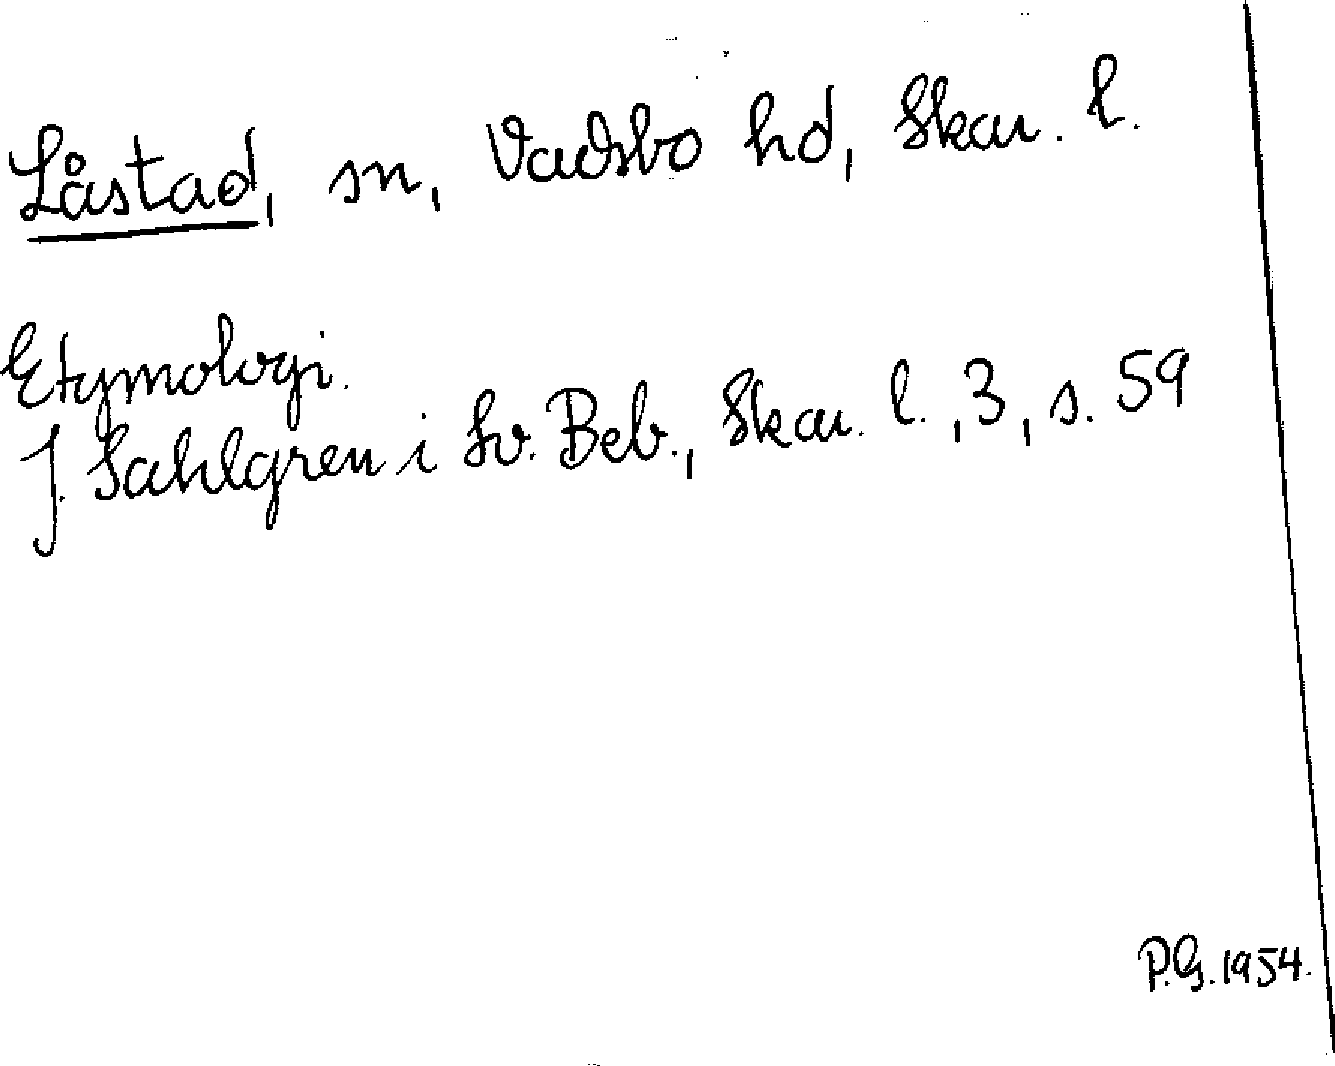 Låstad, sn, Vadsbo hd, Skar. l.
Etymologi.
J. Sahlgren i Sv. Beb., Skar. l., 3, s. 59
P.G. 1954.